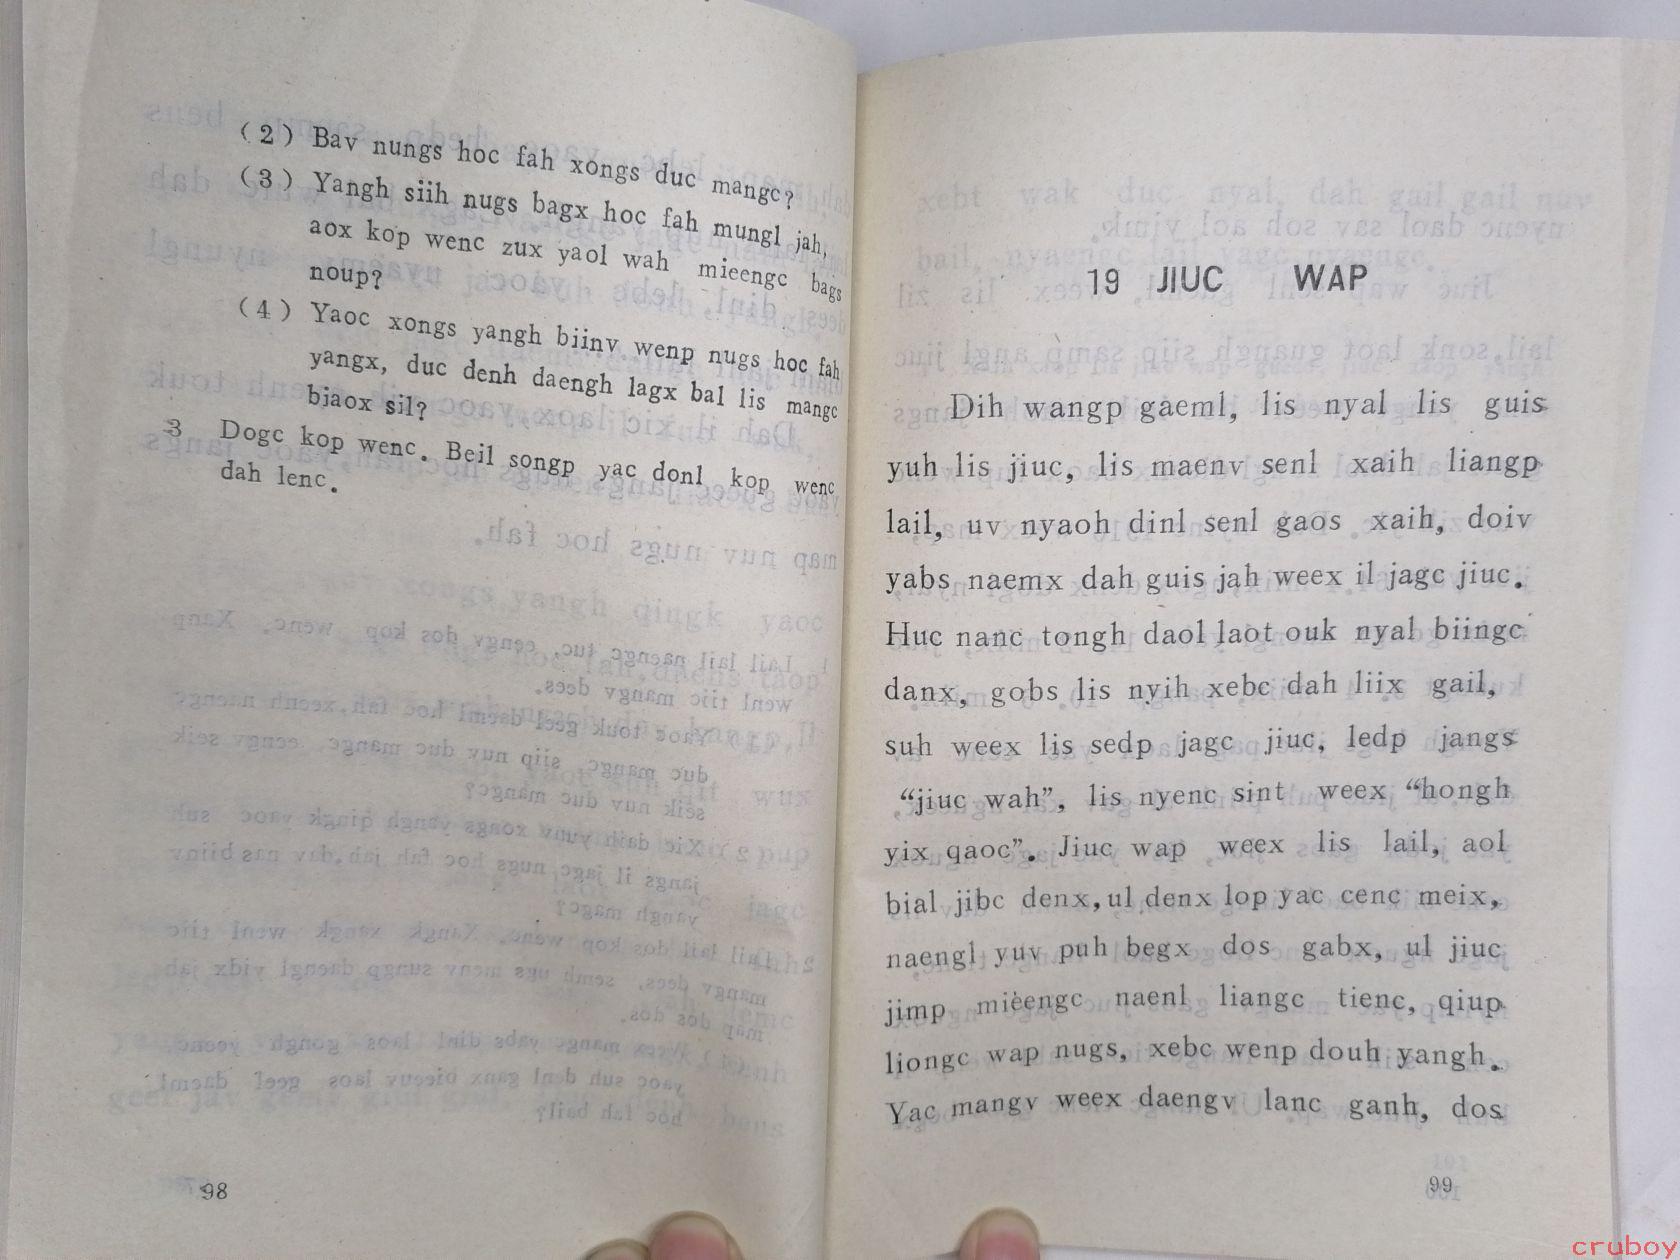 (2) Bav nungs hoc fah xongs duc mangc?
(3) Yangh siih nugs bagx hoc fah mungl jah,
aox kop wenc zux yaol wah mieengc bags
noup?
(4) Yaoc xongs yangh biinv wenp nugs hoc fah
yangx, duc denh daengh lagx bal lis mangc
biaox sil?
3 Dogc kop wenc. Beil songp yac donl kop wenc
dah lenc.
98
19 JIUC WAP
Dih wangp gaeml, lis nyal lis guis
yuh lis jiuc, lis maenv senl xaih liangp
lail, uv nyaoh dinl senl gaos xaih, doiv
yabs naemx dah guis jah weex il jagc jiuc.
Huc nanc tongh daol laot ouk nyal biingc
danx, gobs lis nyih xebc dah liix gail,
suh weex lis sedp jagc jiuc, ledp jangs
“jiuc wah”, lis nyenc sint weex “hongh
yix qaoc”. Jiuc wap weex lis lail, aol
bial jibc denx, ul denx lop yac cenc meix,
naengl yuv puh begx dos gabx, ul jiuc
jimp mieengc naenl liangc tienc, qiup
liongc wap nugs, xebc wenp douh yangh.
Yac mangv weex daengv lanc ganh, dos
99
cruboy